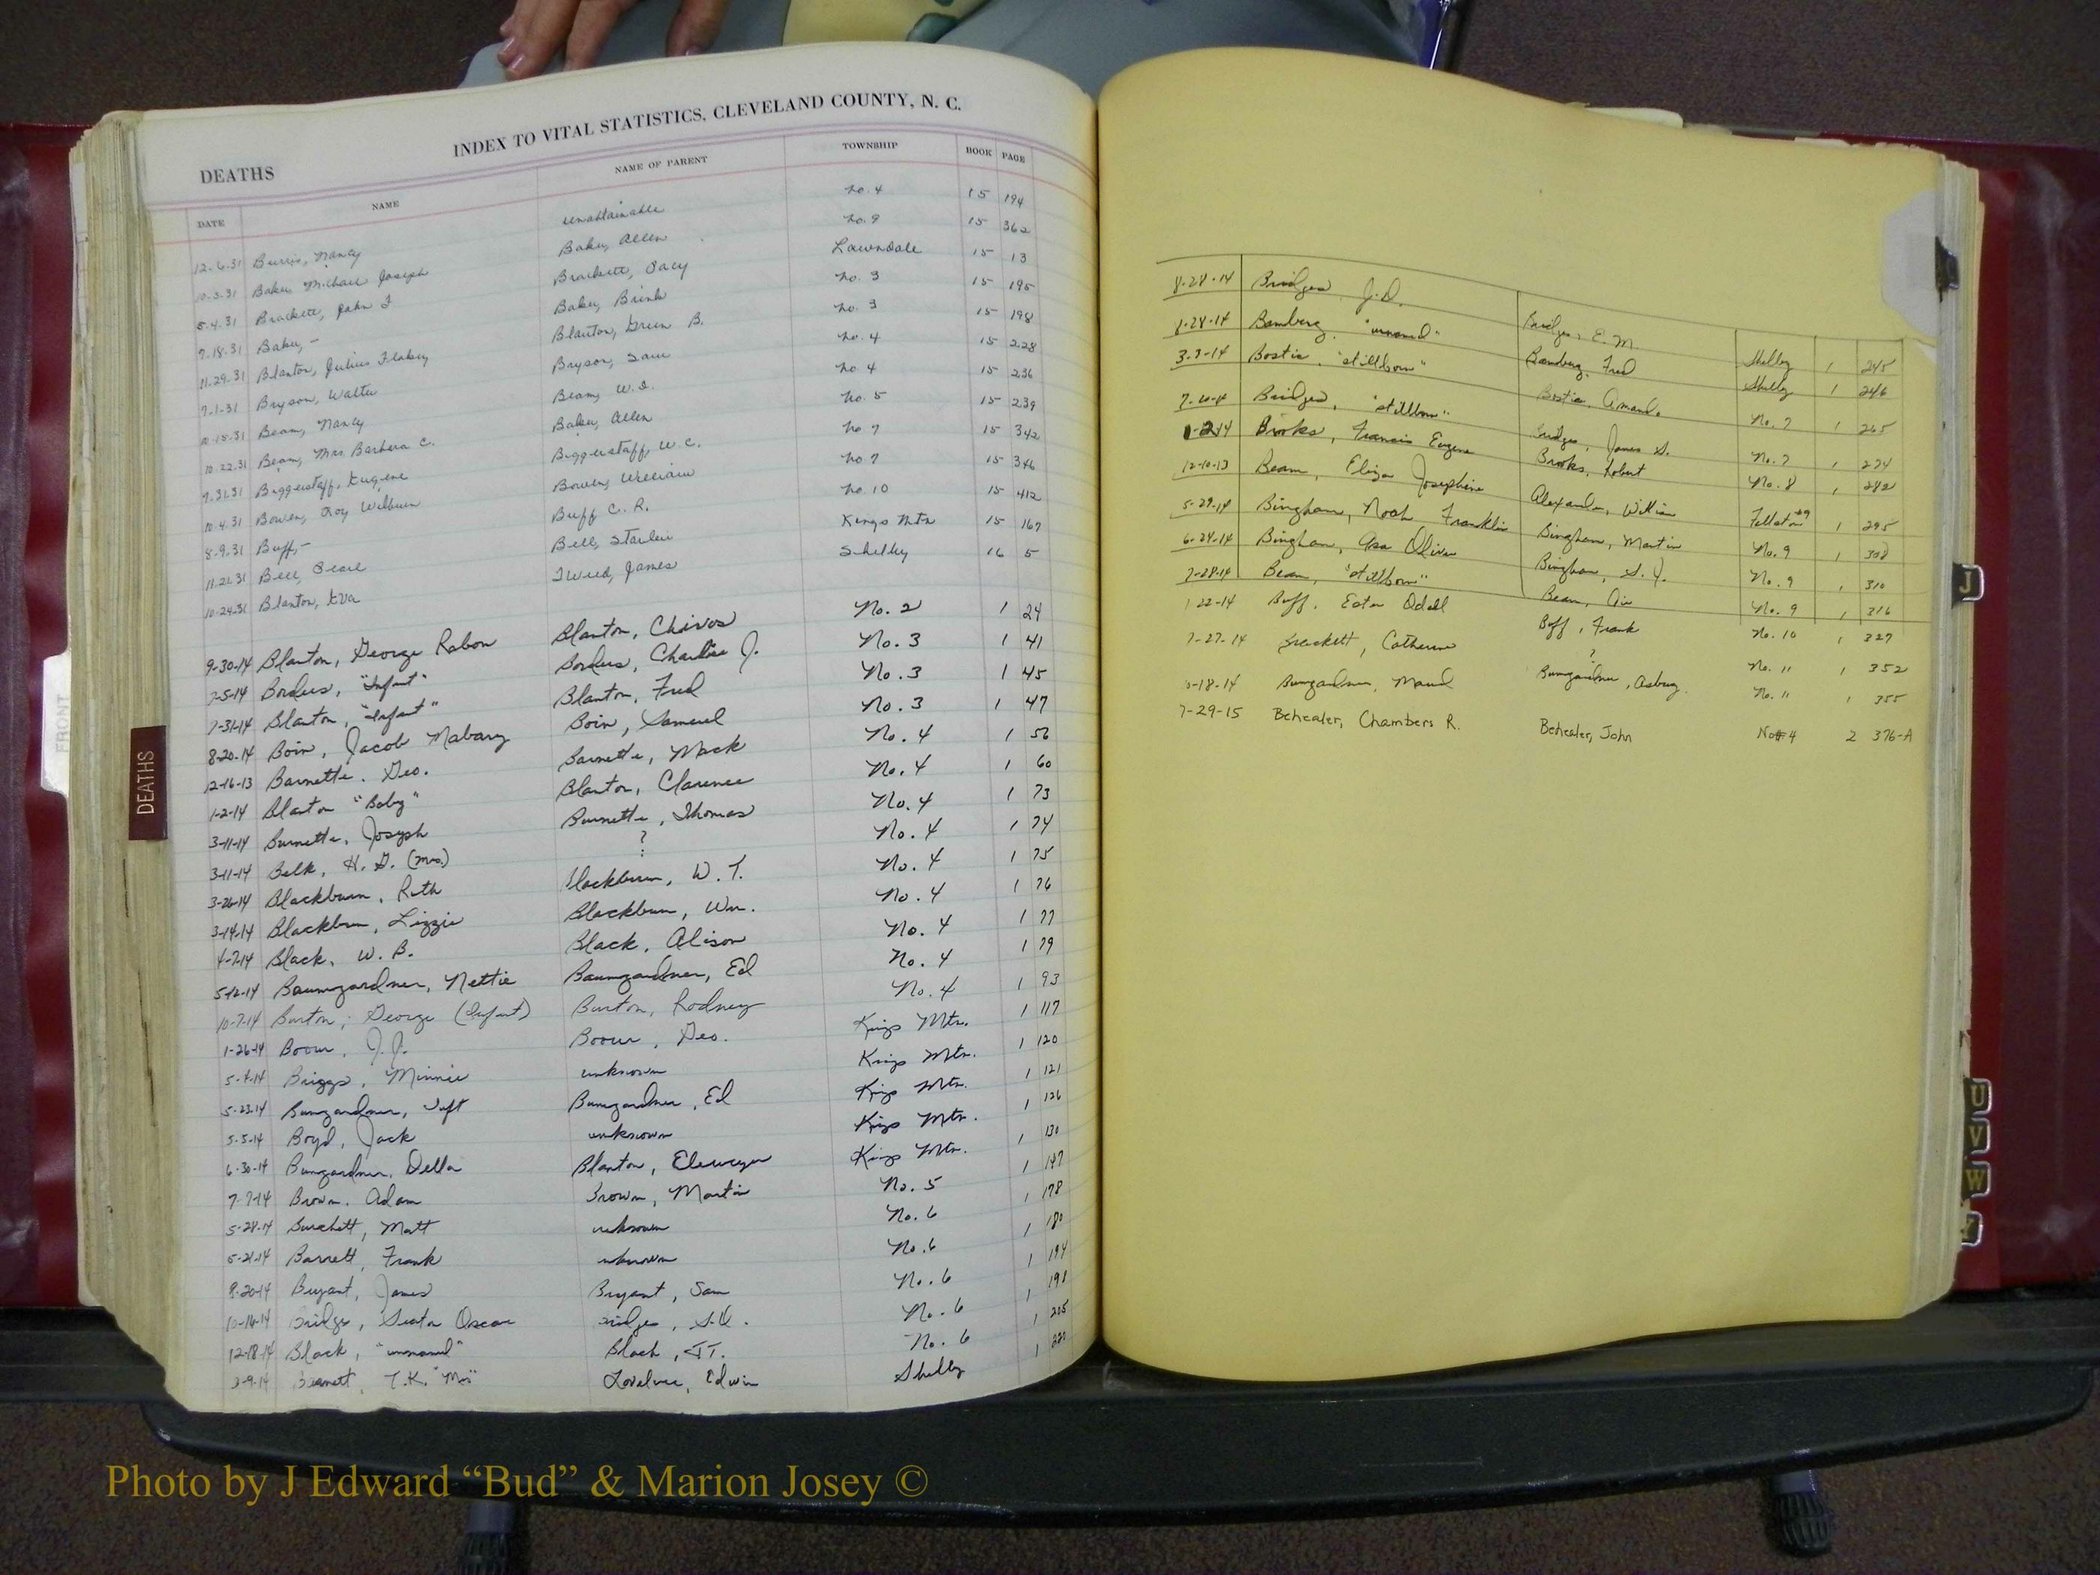 INDEX TO VITAL STATISTICS, CLEVELAND COUNTY, N. C.
DEATHS
DATE NAME NAME OF PARENT TOWNSHIP BOOK PAGE
12-6-31 Burris, Nancy unobtainable No. 4 15 194
10-5-31 Baker Michael Joseph Baker, Allen No. 9 15 362
5-4-31 Brackett, John F Brackett, Lawndale 15 13
7-18-31 Baker, - Baker, Brink No. 3 15 195
11-29-31 Blanton, Julius Blanton, Green B. No. 3 15 198
7-1-31 Bryson, Walter Bryson, Sam No. 4 15 228
10-15-31 Beam, Nancy Beam, W. D. No. 4 15 236
10-22-31 Beam, Mrs. Barbera C. Baker, Allen No. 5 15 239
7-31-31 Biggerstaff, Eugene Biggerstaff, W. C. No 7 15 342
10-4-31 Bowen, Roy Wilburn Bowen, William No 7 15 346
8-9-31 Buff, - Buff C. R. No. 10 15 412
11-21-31 Bell, Pearl Bell, Kings Mtn 15 167
10-24-31 Blanton, Eva Tweed, James Shelby 16 5
9-30-14 Blanton, George Rabon Blanton, Chivos No. 2 1 24
7-5-14 Borders, "Infant" Borders, Charlie J. No. 3 1 41
7-31-14 Blanton, "Infant" Blanton, Fred No. 3 1 45
8-20-14 Boin, Jacob Mabary Boin, Samuel No. 3 1 47
2-16-13 Barnette. Geo. Barnette, Mack No. 4 1 56
1-2-14 Blanton "Baby" Blanton, Clarence No. 4 1 60
3-11-14 Burnette, Joseph Burnette, Thomas No. 4 1 73
3-11-14 Belk, H. G. (Mrs.) ? No. 4 1 74
3-26-14 Blackburn, Ruth Blackburn, W. T. No. 4 1 75
3-14-14 Blackburn, Lizzie Blackburn, Wm. No. 4 1 76
4-7-14 Black, W. B. Black, Alison No. 4 1 77
5-12-14 Baumgardner, Nettie Baumgardner, Ed No. 4 1 79
10-7-14 Burton, George (Infant) Burton, Rodney No. 4 1 93
1-26-14 J. J. Geo. Kings Mtn. 1 117
5-4-14 Briggs, Minnie unknown Kings Mtn. 1 120
5-23-14 Bumgardner, Bumgardner, Ed Kings Mtn. 1 121
5-5-14 Boyd, Jack unknown Kings Mtn. 1 126
6-30-14 Bumgardner, Della Blanton, Kings Mtn. 1 130
7-7-14 Brown, Adam Brown, Martin No. 5 1 147
5-28-14 Burchett, Matt unknown No. 6 1 178
5-21-14 Barrett, Frank unknown No. 6 1 180
9-20-14 Bryant, James Bryant, Sam No. 6 1 194
10-16-14 Bridges, Seaton Oscar Bridges, No. 6 1 198
12-18-14 Black, "unnamed" Black, J.T. No. 6 1 205
3-9-14 T. K. "Mrs" Lovelace, Edwin Shelby 1 220
FRONT
DEATHS
8-28-14 Bridges J. D. Bridges, E. M. Shelby 1 245
8-28-14 Bamberg, "unnamed" Bamberg, Fred Shelby 1 246
3-3-14 Bostic, "stillborn" Bostic, Amanda No. 7 1 265
7-10-14 Bridges, "stillborn" Bridges, James S. No. 7 1 274
1-2-14 Brooks, Francis Eugene Brooks, Robert No. 8 1 282
12-10-13 Beam, Eliza Josephine Alexander, William Fallston #9 1 295
5-29-14 Bingham, Noah Franklin Bingham, Martin No. 9 1 308
6-24-14 Bingham, Asa Oliver Bingham, S. J. No. 9 1 310
7-28-14 Beam, "stillborn" Beam, No. 9 1 316
1-22-14 Buff, Odell Buff, Frank No. 10 1 327
7-27-14 Brackett, Catherine ? No. 11 1 352
10-18-14 Bumgardner, Maud Bumgardner, Asbury No. 11 1 355
7-29-15 Beheler, Chambers R. Beheler, John No# 4 2 376-A
J
U
V
W
Photo by J Edward “Bud” & Marion Josey ©